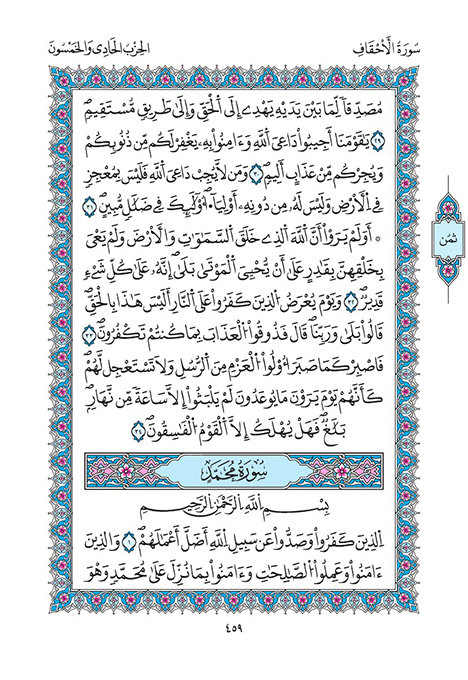 سُورَةُ الْأَحْقَافِ
الحِزْبُ الحَادِى وَالخَمْسُونَ
مُصَدِّقاٗ لِّمَا بَيْنَ يَدَيْهِ يَهْدِےٓ إِلَى اَ۬لْحَقِّ وَإِلَىٰ طَرِيقٖ مُّسْتَقِيمٖۖ
٢٩ يَٰقَوْمَنَآ أَجِيبُواْ دَاعِيَ اَ۬للَّهِ وَءَامِنُواْ بِهِۦ يَغْفِرْ لَكُم مِّن ذُنُوبِكُمْ
وَيُجِرْكُم مِّنْ عَذَابٍ أَلِيمٖۖ ٣٠ وَمَن لَّا يُجِبْ دَاعِيَ اَ۬للَّهِ فَلَيْسَ بِمُعْجِزٖ
فِے اِ۬لْأَرْضِ وَلَيْسَ لَهُۥ مِن دُونِهِۦٓ أَوْلِيَآءُۖ اوْلَٰٓئِكَ فِے ضَلَٰلٖ مُّبِينٍۖ ٣١
۞ اَوَلَمْ يَرَوَاْ اَنَّ اَ۬للَّهَ اَ۬لذِے خَلَقَ اَ۬لسَّمَٰوَٰتِ وَالْأَرْضَ وَلَمْ يَعْيَ
بِخَلْقِهِنَّ بِقَٰدِرٍ عَلَىٰٓ أَنْ يُّحْـِۧيَ اَ۬لْمَوْتَىٰ بَلَىٰٓۖ إِنَّهُۥ عَلَىٰ كُلِّ شَےْءٖ
قَدِيرٞۖ ٣٢ وَيَوْمَ يُعْرَضُ اُ۬لذِينَ كَفَرُواْ عَلَى اَ۬لنّ۪ارِ أَلَيْسَ هَٰذَا بِالْحَقِّۖ
قَالُواْ بَلَىٰ وَرَبِّنَاۖ قَالَ فَذُوقُواْ اُ۬لْعَذَابَ بِمَا كُنتُمْ تَكْفُرُونَۖ ٣٣
فَاصْبِرْ كَمَا صَبَرَ أُوْلُواْ اُ۬لْعَزْمِ مِنَ اَ۬لرُّسُلِ وَلَا تَسْتَعْجِل لَّهُمْۖ
كَأَنَّهُمْ يَوْمَ يَرَوْنَ مَا يُوعَدُونَ لَمْ يَلْبَثُوٓاْ إِلَّا سَاعَةٗ مِّن نَّهَارٖۖ
بَلَٰغٞۖ فَهَلْ يُهْلَكُ إِلَّا اَ۬لْقَوْمُ اُ۬لْفَٰسِقُونَۖ ٣٤
ثُمُن
سُورَةُ مُحَمَّدٍ
بِسْمِ اِ۬للَّهِ اِ۬لرَّحْمَٰنِ اِ۬لرَّحِيمِ
اِ۬لذِينَ كَفَرُواْ وَصَدُّواْ عَن سَبِيلِ اِ۬للَّهِ أَضَلَّ أَعْمَٰلَهُمْۖ ١ وَالذِينَ
ءَامَنُواْ وَعَمِلُواْ اُ۬لصَّٰلِحَٰتِ وَءَامَنُواْ بِمَا نُزِّلَ عَلَىٰ مُحَمَّدٖ وَهُوَ
٤٥٩